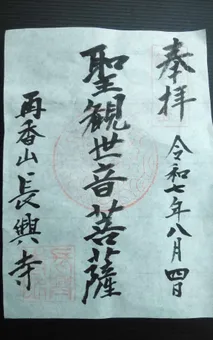 奉拝
令和七年八月四日
聖観世音菩薩
再香山 長興寺